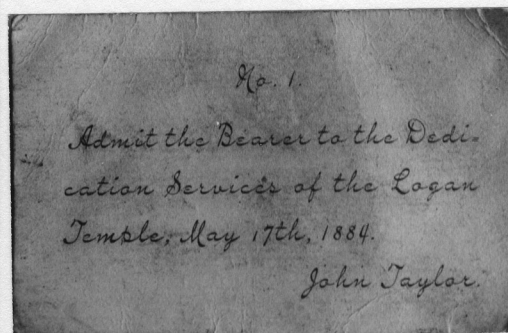 No. 1.
Admit the Bearer to the Dedi-
cation Services of the Logan
Temple, May 17th, 1884.
John Taylor.